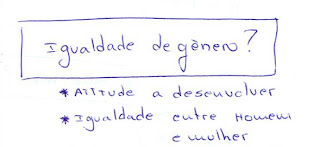 Igualdade de gênero?
* Atitude a desenvolver
* Igualdade entre Homem
e mulher